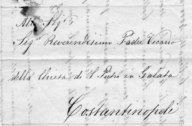 Sig. Reverendissimo Padre Vicario
della Chiesa di S. Pietro in Galata
Costantinopoli